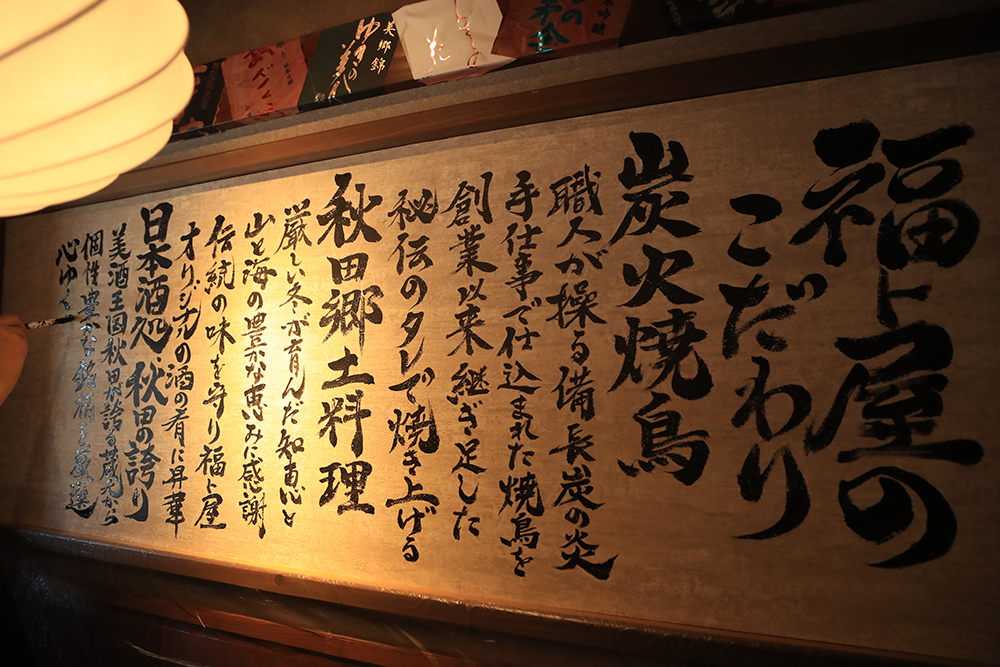 福と屋の
こだわり
炭火焼鳥
職人が操る備長炭の炎
手仕事で仕込まれた焼鳥を
創業以来継ぎ足した
秘伝のタレで焼き上げる
秋田郷土料理
厳しい冬が育んだ知恵心と
山と海の豊かな恵みに感謝
伝統の味を守り福と屋
オリジナルの酒の肴に昇華
日本酒処・秋田の誇り
美酒王国秋田が誇る蔵元から
個性豊かな銘柄を厳選
心ゆ
美郷錦
ゆきの美人